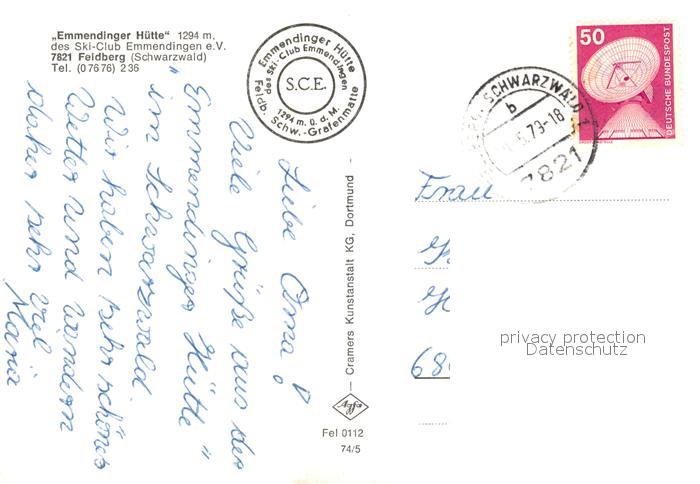 „Emmendinger Hütte“ 1294 m,
des Ski-Club Emmendingen e.V.
7821 Feldberg (Schwarzwald)
Tel. (07676) 236
Emmendinger Hütte
des Ski-Club Emmendingen
S.C.E.
1294 m. ü. d. M.
Feldb. Schw.-Grafenmatte
Liebe Oma!
Viele Grüße aus der
"Emmendinger Hütte"
im Schwarzwald.
Wir haben sehr schönes
Wetter und wandern
daher sehr viel
Maria
Cramers Kunstanstalt KG, Dortmund
Agfa
Fel 0112
74/5
50
DEUTSCHE BUNDESPOST
SCHWARZWALD 1
b
.79-18
7821
Frau
68
privacy protection
Datenschutz